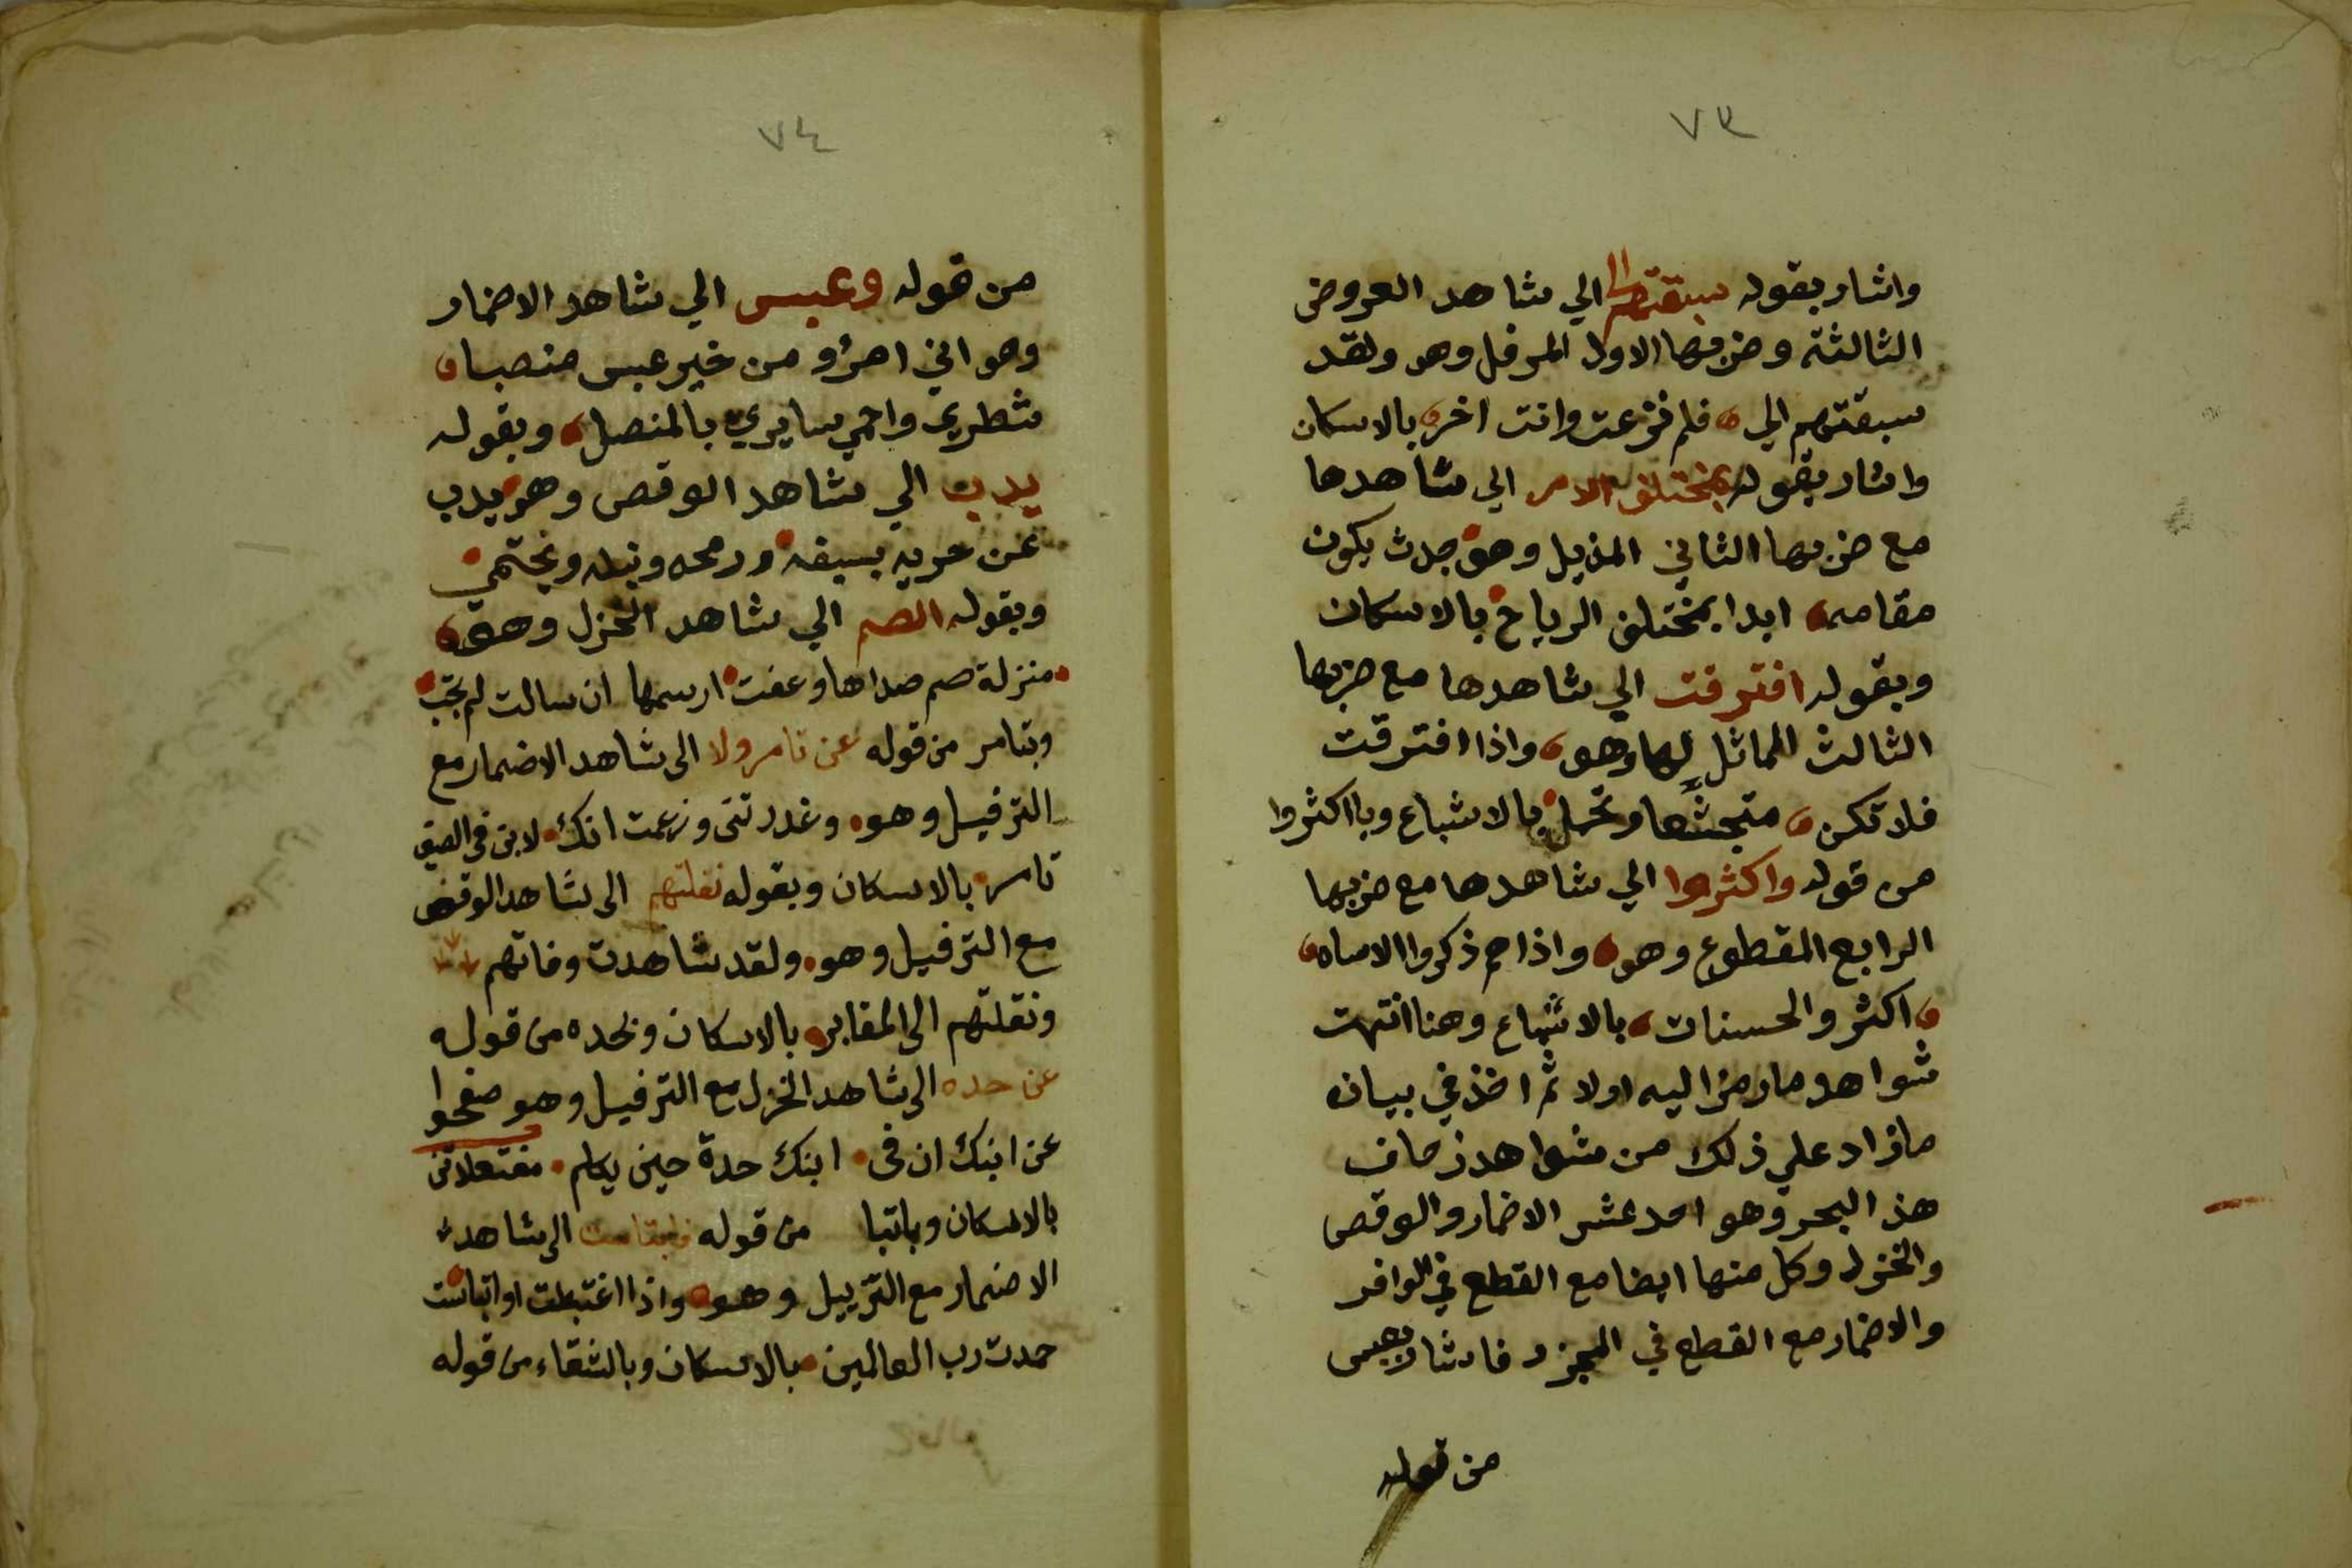 ٧٣
واشار بقوله سبقتهم الي الي شاهد العروض
الثالثة وضربها الاول المرفل وهو ولقد
سبقتهم الي فلم نزعت وانت اخر بالاسكان
واشار بقوله بمختلف الامر الي شاهدها
مع ضربها الثاني المذيل وهو جدث يكون
مقامه ابدا بمختلف الرياح بالاسكان
وبقوله افترقت الي شاهدها مع ضربها
الثالث المماثل لها وهو واذا افترقت
فلا تكن متجشعا وتجمل بالاشباع وباكثروا
من قوله واكثروا الي شاهدها مع ضربها
الرابع المقطوع وهو واذا هم ذكروا الاساه
اكثروا الحسنات بالاشباع وهنا انتهت
شواهد ما رمزا اليه اولا ثم اخذ في بيان
ما زاد علي ذلك من شواهد زحاف
هذ البحر وهو احد عشر الاضمار والوقص
والخزل وكل منها ايضا مع القطع في الوافر
والاضمار مع القطع في المجزو فاشار بعبس
من قوله
٧٤
من قوله وعبس الي شاهد الاضمار
وهو اني امرؤ من خير عبس منصبا
شطري واحمي سايري بالمنصل وبقوله
يدب الي شاهد الوقص وهو يدب
عن حريه بسيفه ورمحه ونبله ويحتمي
وبقوله الصم الي شاهد الخزل وهو
منزلة صم صداها وعفت ارسمها ان سالت لم تجب
وبتامر من قوله عن تامر ولا الى شاهد الاضمار مع
الترفيل وهو وغدرتنى وزعمت انك لابن فى الصيف
تامر بالاسكان وبقوله نقلتهم الى شاهد الوقص
مع الترفيل وهو ولقد شاهدت وفاتهم
ونقلتهم الى المقابر بالاسكان وبحده من قوله
عن حده الى شاهد الخزل مع الترفيل وهو صفحوا
عن ابنك ان فى ابنك حدة حين يكلم مفتعلاتن
بالاسكان وباتبا من قوله الى شاهد
الاضمار مع التذييل وهو واذا اغتبطت او ابتاست
حمدت رب العالمين بالاسكان وبالشقاء من قوله